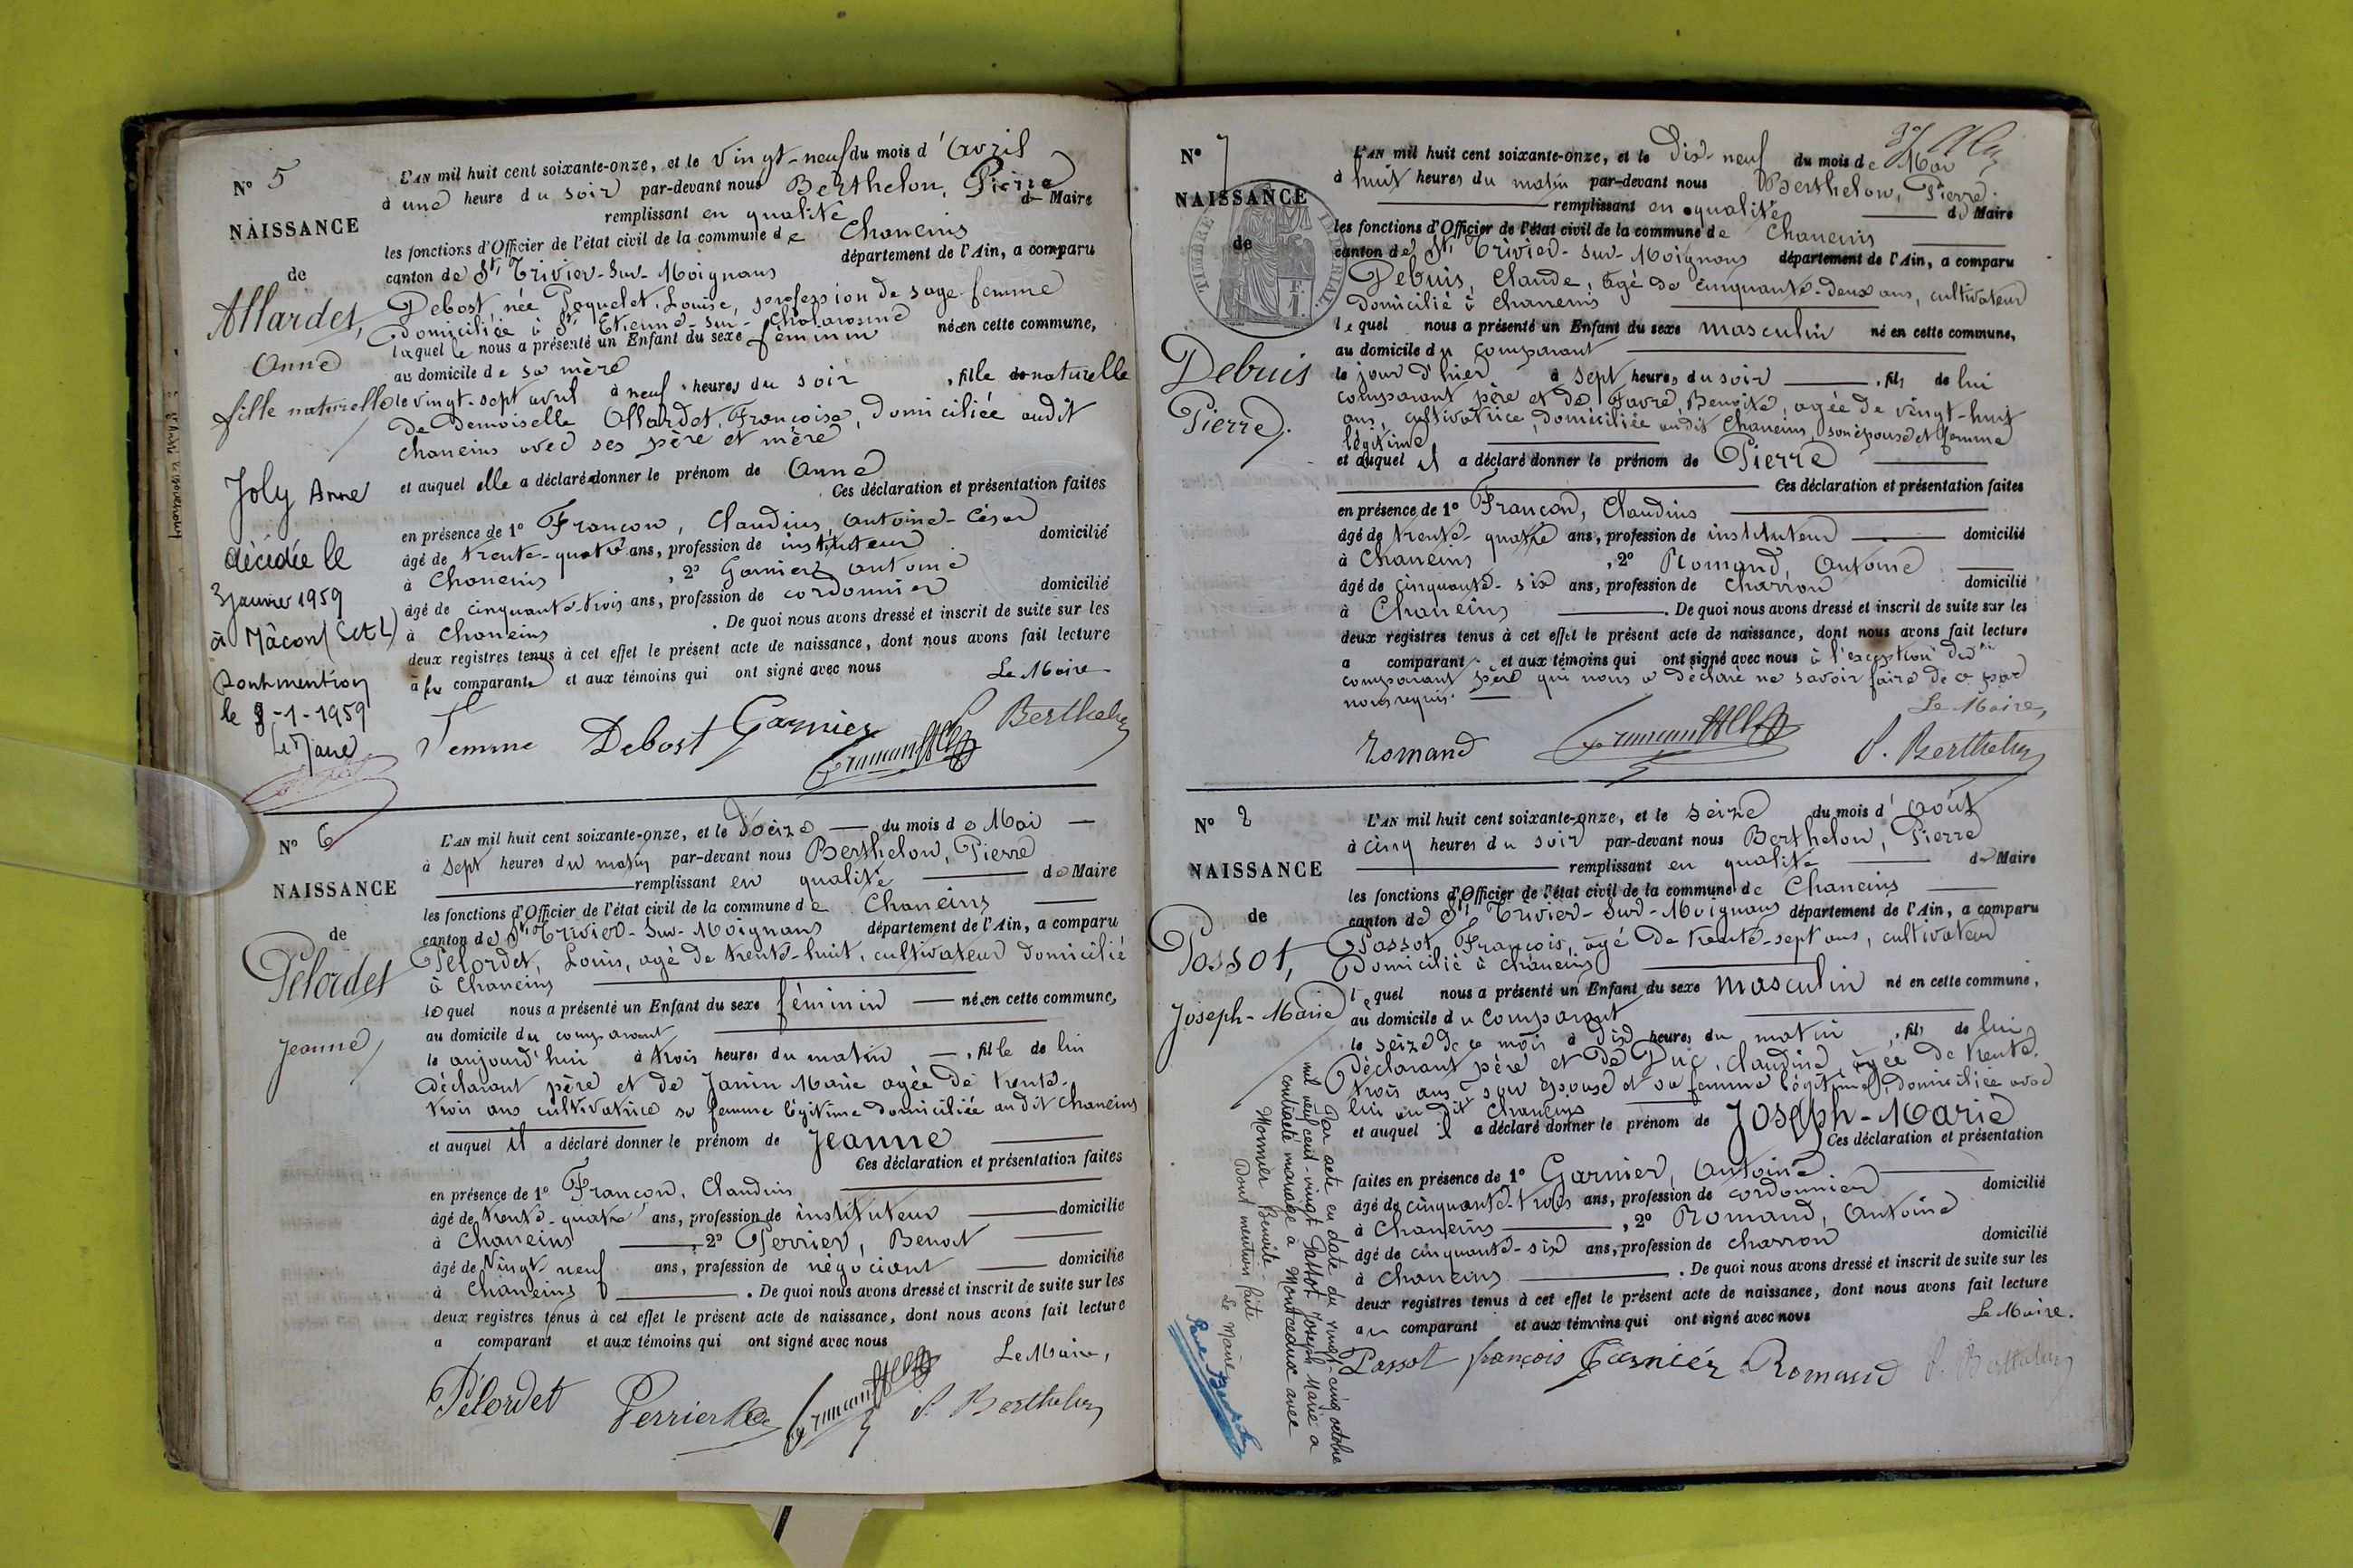 N° 5
NAISSANCE
de
Allardet,
Anne
fille naturelle
Joly Anne
décédée le
3 janvier 1959
à Mâcon (S et L)
Dont mention
le 8-1-1959
Le Maire
L'AN mil huit cent soixante-onze, et le vingt-neuf du mois d'avril
à une heure du soir par-devant nous Berthelon, Pierre
remplissant en qualité de Maire
les fonctions d'Officier de l'état civil de la commune de Chaneins
canton de St Trivier-sur-Moignans département de l'Ain, a comparu
Debost, née Paquelet, Louise, profession de sage-femme
domiciliée à St Etienne-sur-Chalaronne
laquelle nous a présenté un Enfant du sexe féminin né en cette commune,
au domicile de sa mère
le vingt-sept avril à neuf heures du soir, fille naturelle
de Demoiselle Allardet, Françoise, domiciliée audit
Chaneins avec ses père et mère
et auquel elle a déclaré donner le prénom de Anne
Ces déclaration et présentation faites
en présence de 1° Françon, Claudius, Antoine-César
âgé de trente-quatre ans, profession de instituteur domicilié
à Chaneins, 2° Garnier Antoine
âgé de cinquante-trois ans, profession de cordonnier domicilié
à Chaneins. De quoi nous avons dressé et inscrit de suite sur les
deux registres tenus à cet effet le présent acte de naissance, dont nous avons fait lecture
à la comparante et aux témoins qui ont signé avec nous
Le Maire
Femme Debost Garnier Berthelon
N° 6
NAISSANCE
de
Pelordet
Jeanne
L'AN mil huit cent soixante-onze, et le seize du mois de Mai
à sept heures du matin par-devant nous Berthelon, Pierre
remplissant en qualité de Maire
les fonctions d'Officier de l'état civil de la commune de Chaneins
canton de St Trivier-sur-Moignans département de l'Ain, a comparu
Pelordet, Louis, agé de trente-huit, cultivateur domicilié
à Chaneins
lequel nous a présenté un Enfant du sexe féminin né en cette commune,
au domicile du comparant
le aujourd'hui à trois heures du matin, fille de lui
déclarant père et de Janin Marie agée de trente-
trois ans cultivatrice sa femme légitime domiciliée au dit Chaneins
et auquel il a déclaré donner le prénom de Jeanne
Ces déclaration et présentation faites
en présence de 1° Françon, Claudius
âgé de trente-quatre ans, profession de instituteur domicilié
à Chaneins, 2° Perrier, Benoit
âgé de vingt neuf ans, profession de négociant domicilié
à Chaneins. De quoi nous avons dressé et inscrit de suite sur les
deux registres tenus à cet effet le présent acte de naissance, dont nous avons fait lecture
a comparant et aux témoins qui ont signé avec nous
Le Maire,
Pélordet Perrier P. Berthelon
N° 7
NAISSANCE
de
TIMBRE IMPÉRIAL
Debuis
Pierre
L'AN mil huit cent soixante-onze, et le dix-neuf du mois de Mai
à huit heures du matin par-devant nous Berthelon, Pierre
remplissant en qualité de Maire
les fonctions d'Officier de l'état civil de la commune de Chaneins
canton de St Trivier-sur-Moignans département de l'Ain, a comparu
Debuis, Claude, âgé de cinquante-deux ans, cultivateur
domicilié à Chaneins
lequel nous a présenté un Enfant du sexe masculin né en cette commune,
au domicile du comparant
le jour d'hier à sept heures du soir, fils de lui
comparant père et de Favre, Benoite, agée de vingt-huit
ans, cultivatrice, domiciliée au dit Chaneins, son épouse et femme
légitime
et auquel il a déclaré donner le prénom de Pierre
Ces déclaration et présentation faites
en présence de 1° Françon, Claudius
âgé de trente-quatre ans, profession de instituteur domicilié
à Chaneins, 2° Romand, Antoine
âgé de cinquante-six ans, profession de charron domicilié
à Chaneins. De quoi nous avons dressé et inscrit de suite sur les
deux registres tenus à cet effet le présent acte de naissance, dont nous avons fait lecture
a comparant et aux témoins qui ont signé avec nous à l'exception du
comparant père qui nous a déclaré ne savoir faire de ce par
nous requis.
Le Maire,
Romand P. Berthelon
N° 8
NAISSANCE
de
Passot,
Joseph-Marie
Par acte en date du vingt-cinq octobre
mil neuf cent-vingt Passot Joseph Marie a
contracté mariage à Montceaux avec
Monnier Benoîte-
Dont mention faite
Le Maire
L'AN mil huit cent soixante-onze, et le seize du mois d'août
à cinq heures du soir par-devant nous Berthelon, Pierre
remplissant en qualité de Maire
les fonctions d'Officier de l'état civil de la commune de Chaneins
canton de St Trivier-sur-Moignans département de l'Ain, a comparu
Passot, François, âgé de trente-sept ans, cultivateur
domicilié à Chaneins
lequel nous a présenté un Enfant du sexe masculin né en cette commune,
au domicile du comparant
le seize de ce mois à dix heures du matin, fils de lui
déclarant père et de Duc, Claudine, âgée de trente-
trois ans, son épouse et sa femme légitime, domiciliée avec
lui au dit Chaneins
et auquel il a déclaré donner le prénom de Joseph-Marie
Ces déclaration et présentation
faites en présence de 1° Garnier, Antoine
âgé de cinquante-trois ans, profession de cordonnier domicilié
à Chaneins, 2° Romand, Antoine
âgé de cinquante-six ans, profession de charron domicilié
à Chaneins. De quoi nous avons dressé et inscrit de suite sur les
deux registres tenus à cet effet le présent acte de naissance, dont nous avons fait lecture
au comparant et aux témoins qui ont signé avec nous
Le Maire.
Passot françois Garnier Romand P. Berthelon